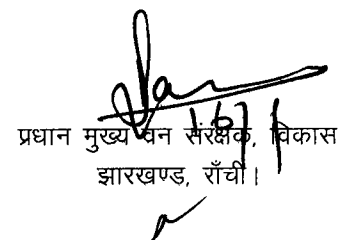 16/1
प्रधान मुख्य वन संरक्षक, विकास
झारखण्ड, राँची।